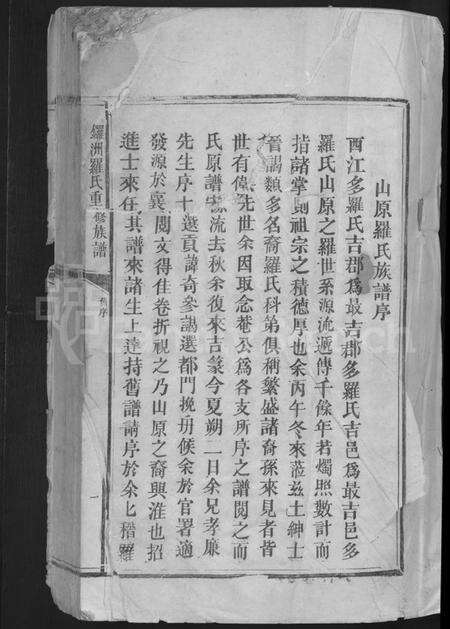 山原羅氏族譜序
西江多羅氏吉郡爲最吉郡多羅氏吉邑爲最吉邑多
羅氏山原之羅世系源流遞傳千餘年若燭照數計而
指諸掌則祖宗之積德厚也余丙午冬來蒞茲土紳士
晉謁類多名裔羅氏科第俱稱繁盛諸裔孫來見者皆
世有偉先世余因取念菴公爲各支所序之譜閱之而
氏原譜源流去秋余復來吉篆今夏朔一日余兄孝廉
先生序十選貢諱奇參謁選都門挽舟候余於官署適
發源於襄閱文得佳卷折視之乃山原之裔興淮也招
進士來任其譜來諸生上達持舊譜請序於余匕稽羅
鑼洲羅氏重修族譜
序
一